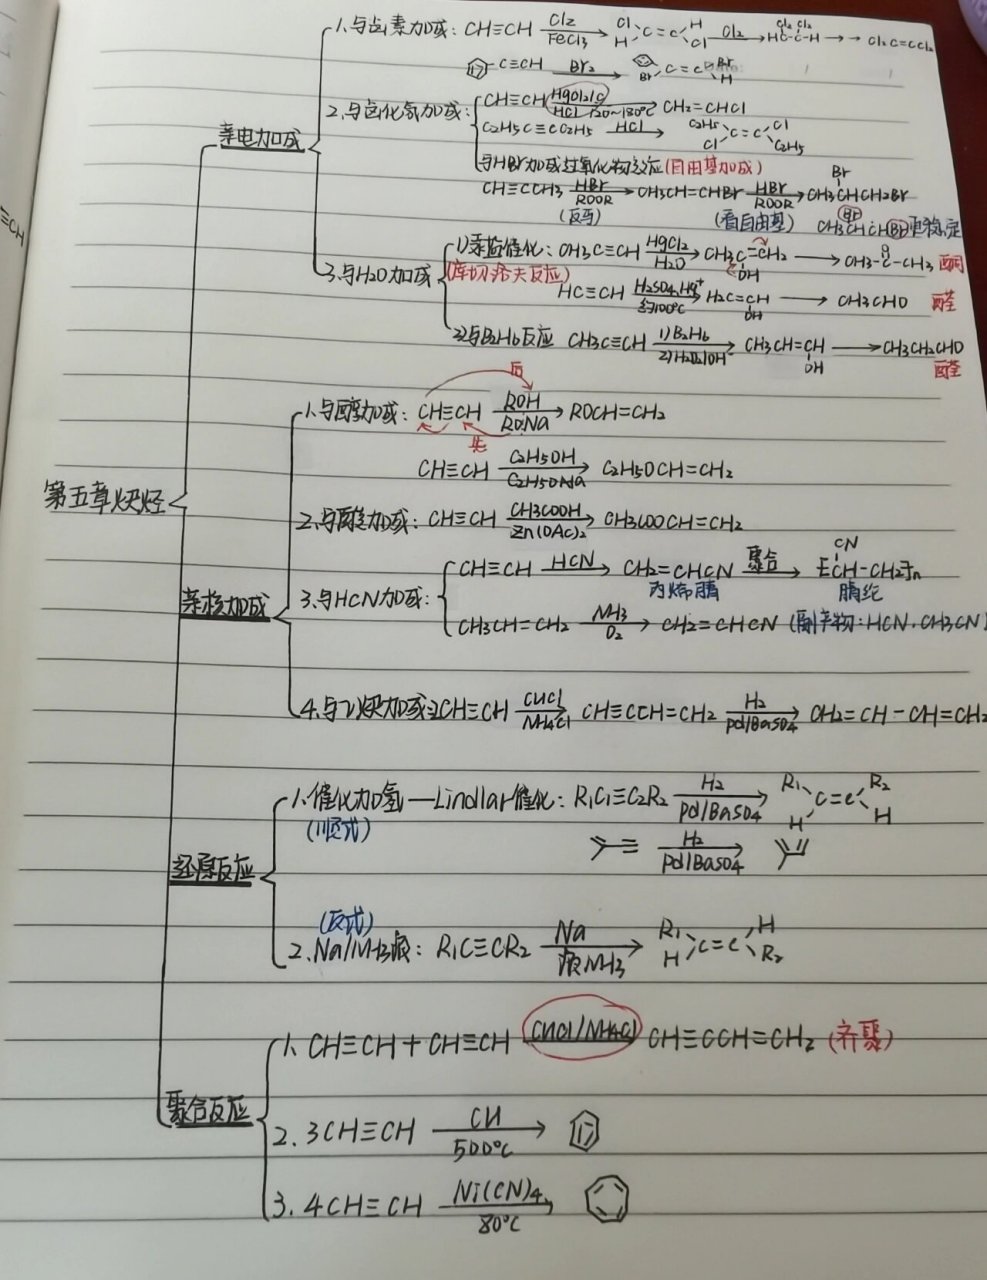 第五章炔烃
亲电加成
1.与卤素加成: CH≡CH Cl2 FeCl3 Cl H C=C H Cl Cl2 Cl2 Cl2 HC-C-H Cl2C=CCl2
C≡CH Br2 Br C=C Br H
2.与卤化氢加成: CH≡CH HgCl2/C HCl 120~180℃ CH2=CHCl
C2H5C≡CC2H5 HCl C2H5 Cl C=C Cl C2H5
与HBr加成过氧化物效应(自由基加成)
CH≡CCH3 HBr ROOR CH3CH=CHBr HBr ROOR CH3CHCH2Br Br
(反马) (看自由基) CH3CHCHBr Br 更稳定
3.与H2O加成
1)汞盐催化: CH3C≡CH HgCl2 H2O CH3C=CH2 OH CH3-C-CH3 O 酮
(库切洛夫反应) HC≡CH H2SO4,Hg+ 100℃ H2C=CH OH CH3CHO 醛
2)与B2H6反应 CH3C≡CH 1)B2H6 2)H2O2/OH- CH3CH=CH OH CH3CH2CHO
醛
亲核加成
1.与醇加成: CH≡CH ROH RONa ROCH=CH2
后
先
CH≡CH C2H5OH C2H5ONa C2H5OCH=CH2
2.与酸加成: CH≡CH CH3COOH Zn(OAc)2 CH3COOCH=CH2
3.与HCN加成: CH≡CH HCN CH2=CHCN 聚合 [CH-CH2]n CN
丙烯腈 腈纶
CH3CH=CH2 NH3 O2 CH2=CHCN (副产物:HCN.CH3CN)
4.与乙炔加成: CH≡CH CuCl NH4Cl CH≡CCH=CH2 H2 pd/BaSO4 CH2=CH-CH=CH2
还原反应
1.催化加氢—Lindlar催化: R1C1≡C2R2 H2 pd/BaSO4 R1 H C=C R2 H
(顺式)
H2 pd/BaSO4
(反式)
2.Na/NH3液: R1C≡CR2 Na 液NH3 R1 H C=C H R2
聚合反应
1. CH≡CH+CH≡CH CuCl/NH4Cl CH≡CCH=CH2 (齐聚)
2. 3CH≡CH CU 500℃
3. 4CH≡CH Ni(CN)4 80℃
≡CH